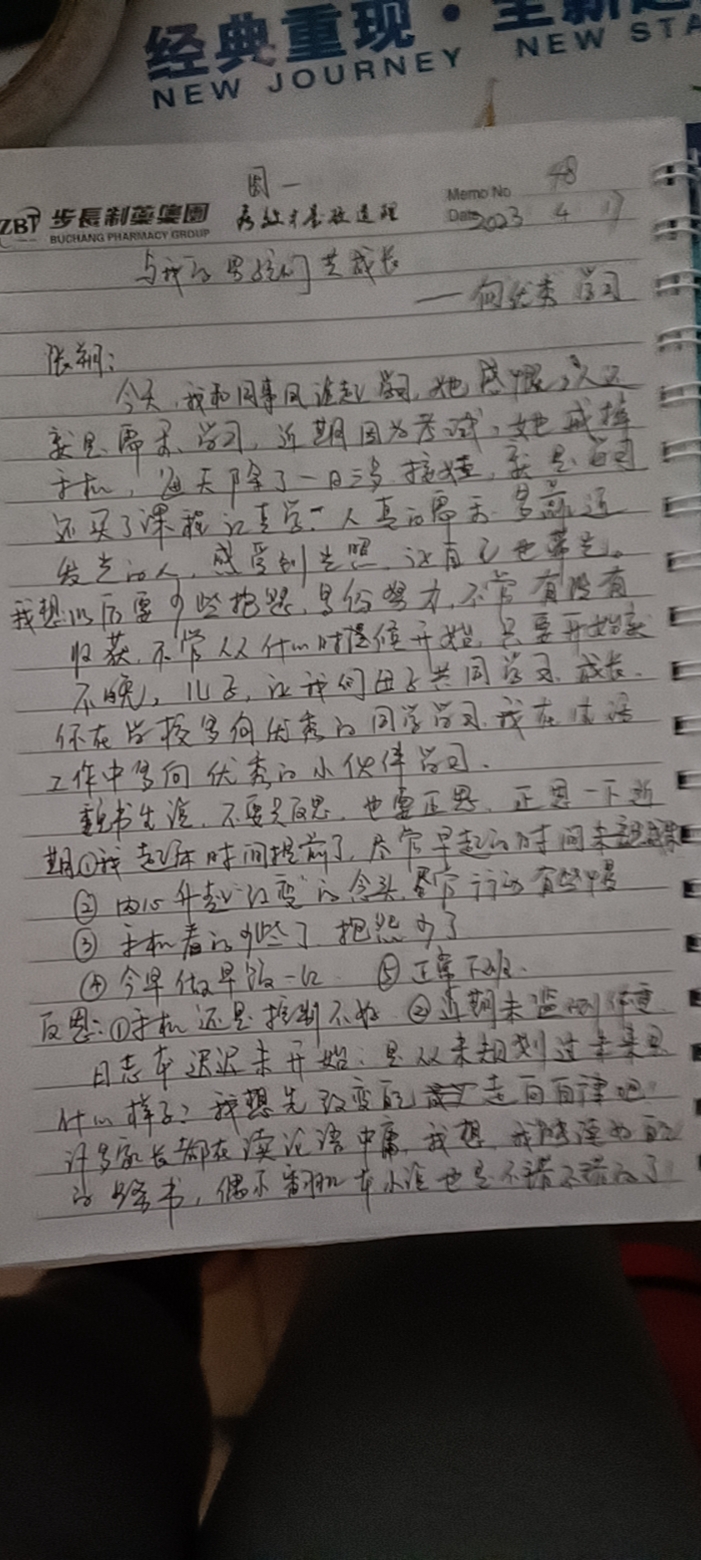 经典重现·全新起
NEW JOURNEY NEW STA
周一
Memo No 48
ZBT 步長制藥集團
BUCHANG PHARMACY GROUP
Date 2023 4 17
与我的男孩们共成长
——向优秀学习
张朔：
今天，我和同事闲谈起学习，她感慨，人还
就是需要学习，近期因为考试，她戒掉
手机，每天除了一日三餐，接娃，就是学习
还买了课程认真学，人真的需要多靠近
发光的人，感受到光照，让自己也带光。
我想以后要少些抱怨，多份努力，不管有没有
收获，不管从什么时候开始，只要开始就
不晚，儿子，让我们母子共同学习、成长。
你在学校多向优秀的同学学习，我在生活
工作中多向优秀的小伙伴学习。
魏书生说，不要光反思，也要正思，正思一下近
期①我起床时间提前了，尽管早起的时间未
②内心升起"改变"的念头，尽管行动有些慢
③手机看的少些了，抱怨少了
④今早做早饭一次 ⑤正常下班.
反思：①手机还是控制不好 ②近期未监测体重
日志本迟迟未开始：是从未规划过未来是
什么样子？我想先改变的是自律吧
许多家长都在读论语中庸，我想，我
的书，偶尔翻翻本小说也是不错不错的了